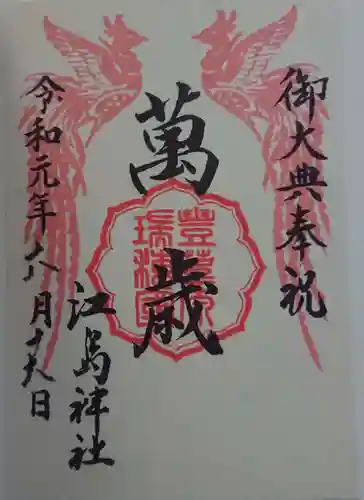 御大典奉祝
萬歳
豊葦原
瑞穂国
江島神社
令和元年八月十八日